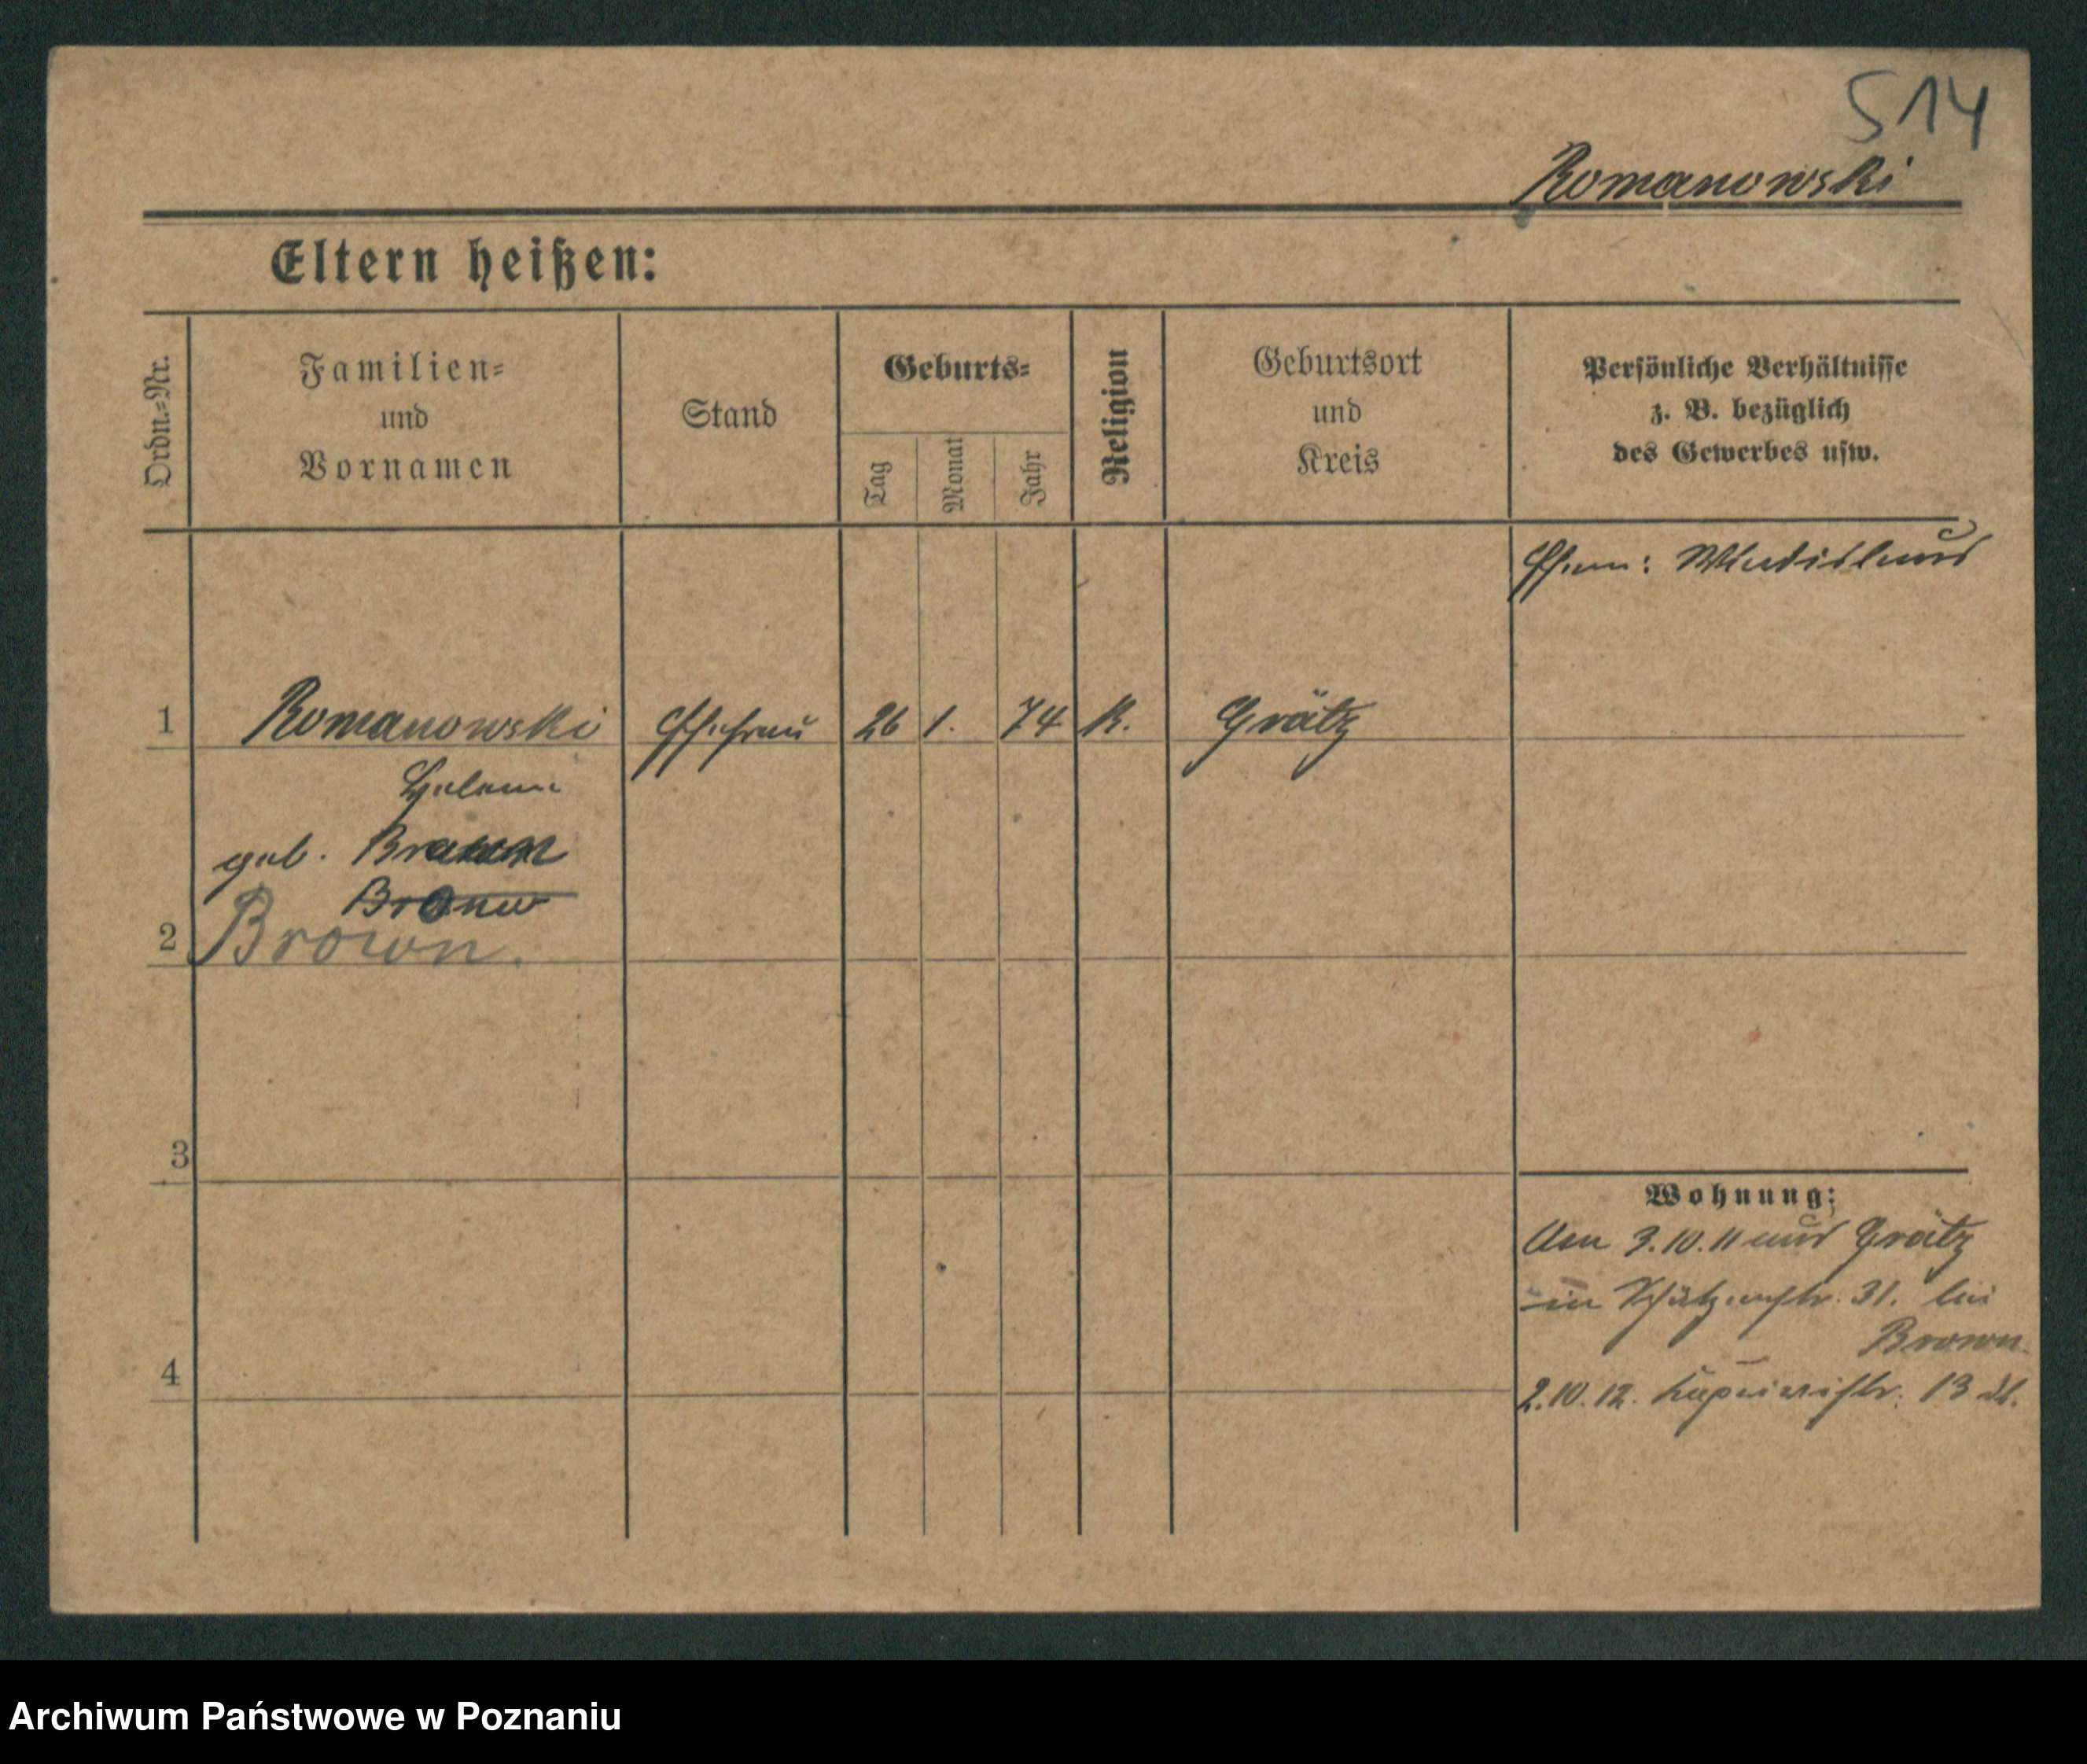 514
Romanowski
Eltern heißen:
Ordn.-Nr.
Familien=
und
Vornamen
Stand
Geburts=
Tag
Monat
Jahr
Religion
Geburtsort
und
Kreis
Persönliche Verhältnisse
z. B. bezüglich
des Gewerbes usw.
Ehem: Wladislaus
1 Romanowski Ehefrau 26 1. 74 K. Grätz
Helene
geb. Brown
Bronw
2 Brown.
3
Wohnung:
Am 3.10.11 aus Grätz
in Schützenstr. 31. bei
Brown.
4
2.10.12. 13
Archiwum Państwowe w Poznaniu